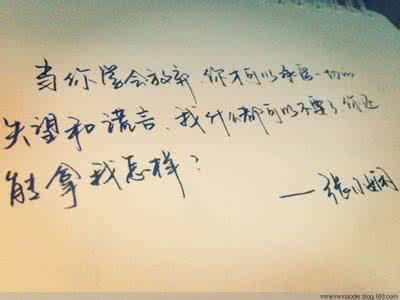 当你学会放弃 你才可以承受一切的
失望和谎言、我什么都可以不要了你还
能拿我怎样？
——张小娴
minminxiaodie.blog.163.com